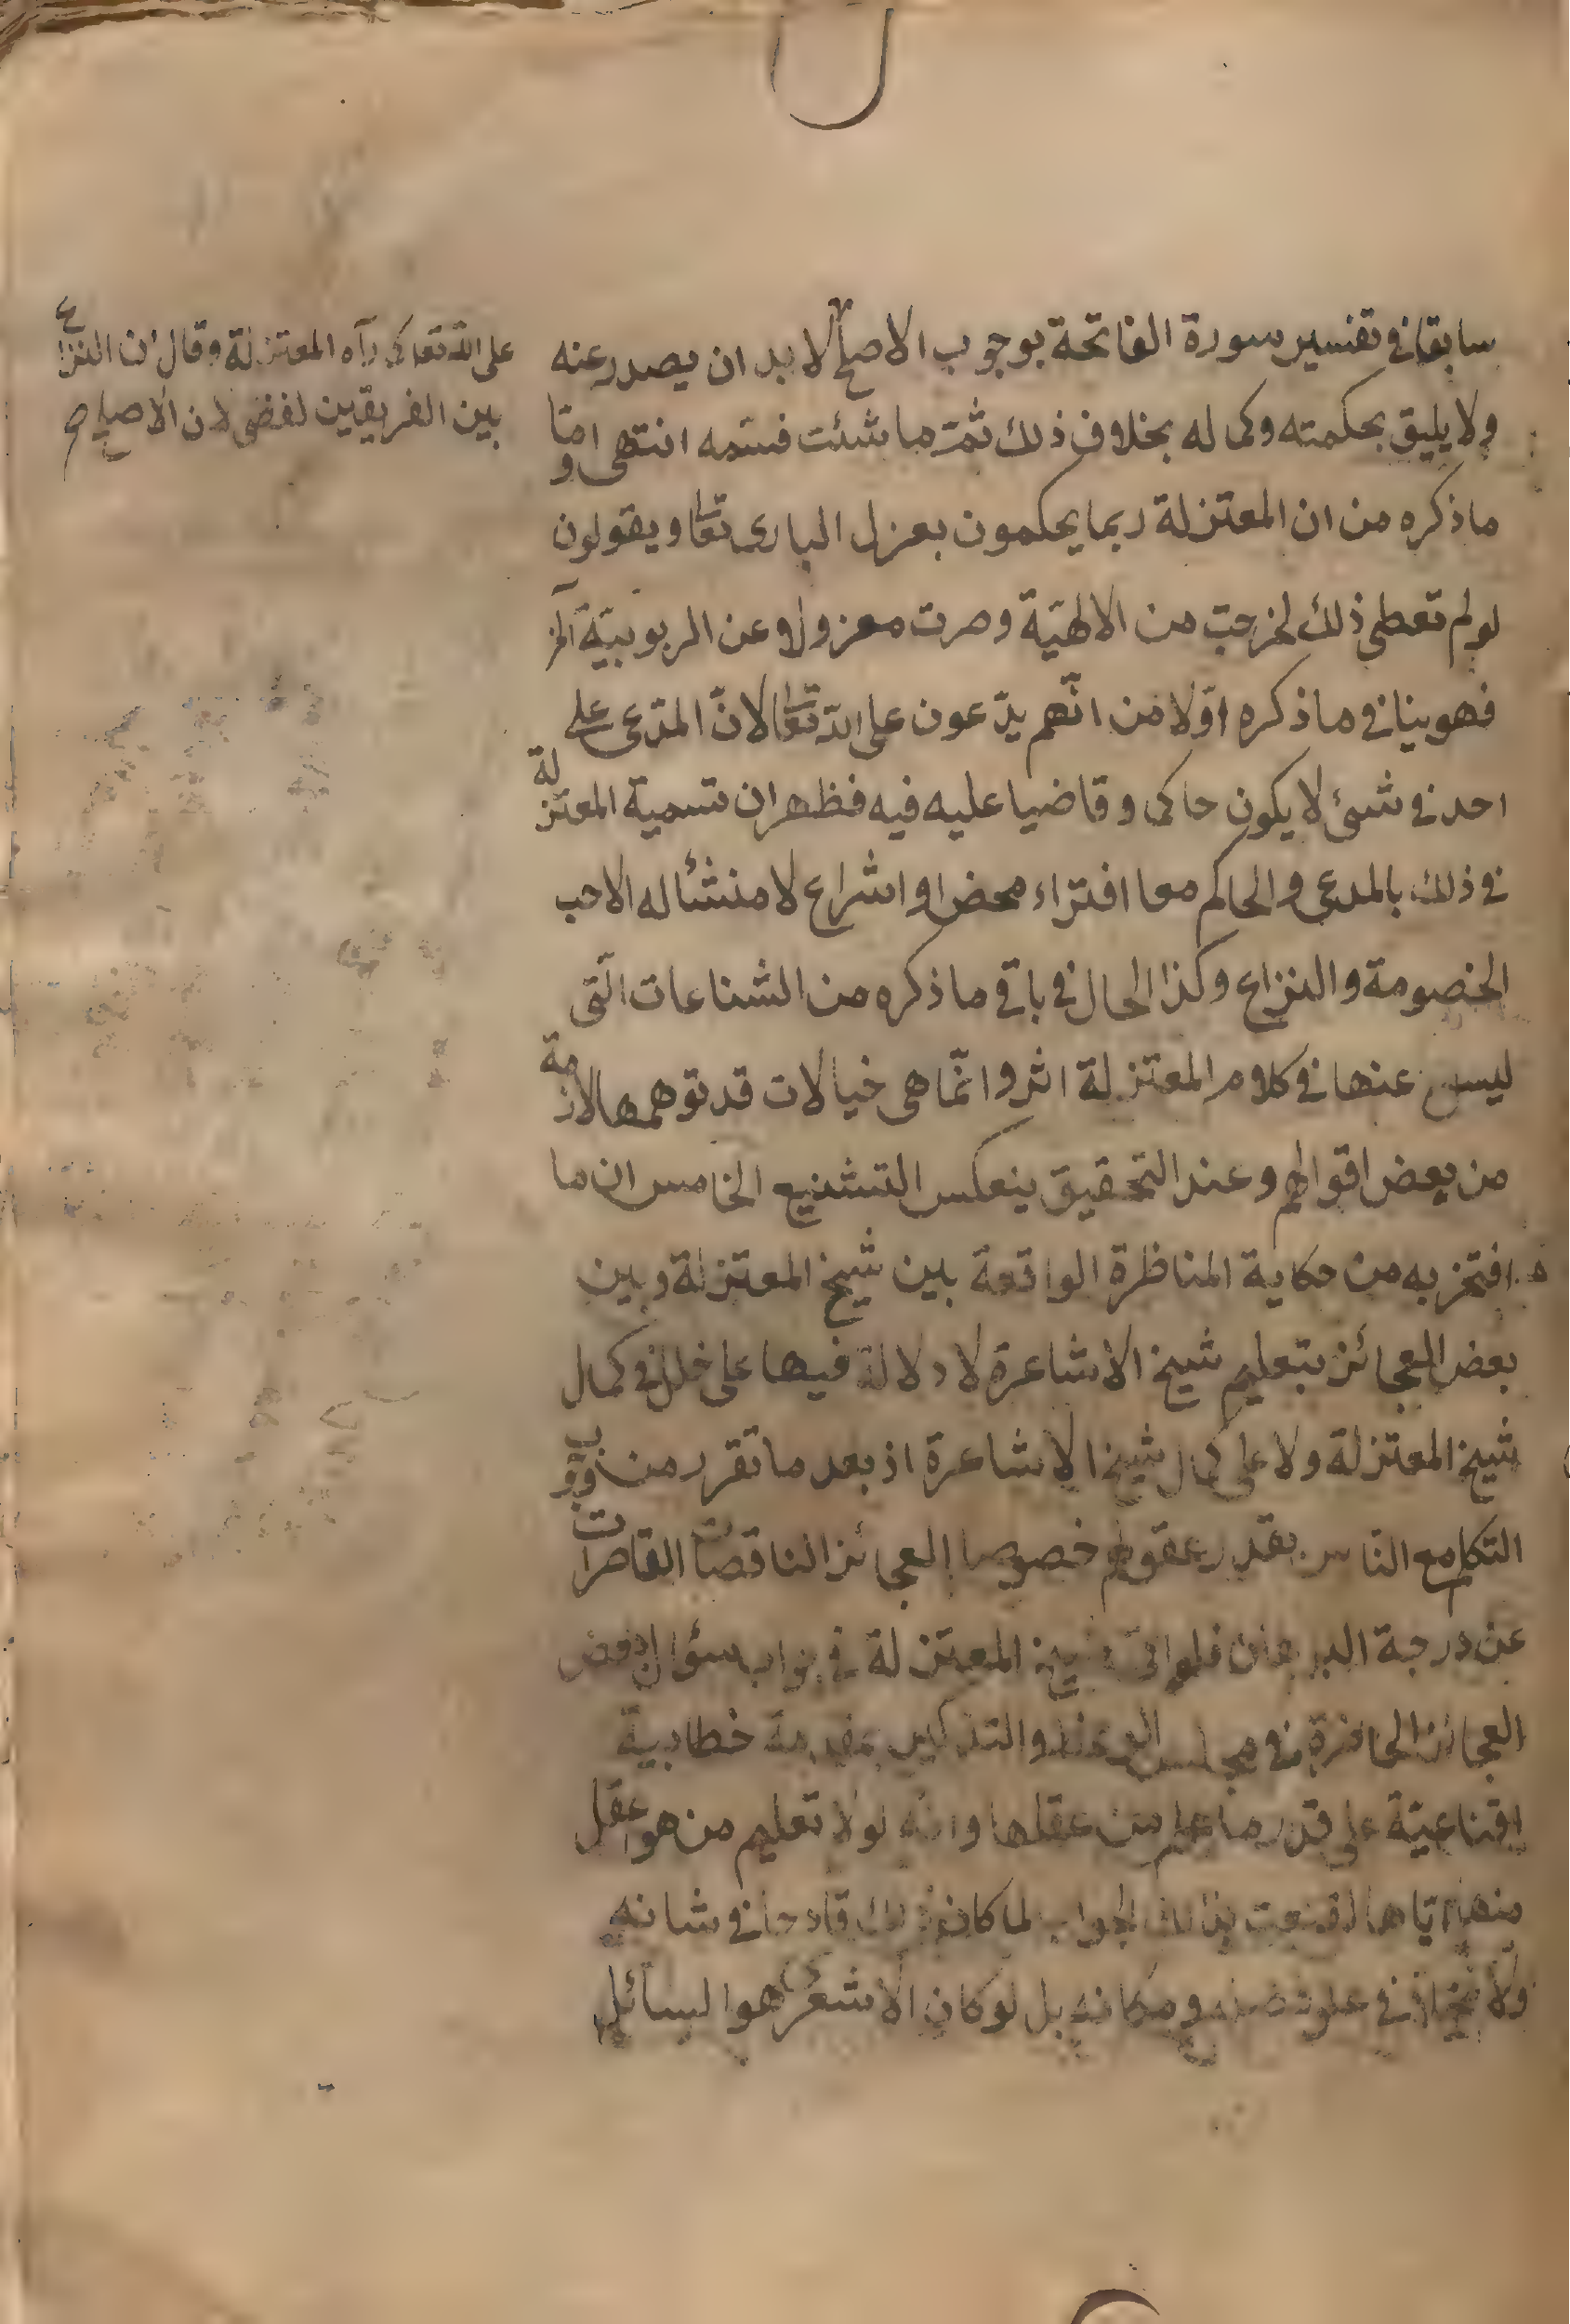 سابقا في تفسير سورة الفاتحة بوجوب الاصلح لا بد ان يصدر عنه
ولا يليق بحكمته وكماله بخلاف ذلك ثمت ما شئت فسمه انتهى واما
ما ذكره من ان المعتزلة ربما يحكمون بعزل البارى تعا ويقولون
لو لم تعطى ذلك لخرجت من الالهيّة وصرت معزولا عن الربوبيّة آلخ
فهو ينافي ما ذكره اوّلا من انّهم يدّعون على الله تعا لانّ المدّعى على
احد في شئ لا يكون حاكما وقاضيا عليه فيه فظهر ان تسمية المعتزلة
في ذلك بالمدعى والحاكم معا افتراء محض او اشراع لا منشأ له الا حب
الخصومة والنزاع وكذا الحال في باقي ما ذكره من الشناعات الّتى
ليس عنها في كلام المعتزلة اثر وانّما هى خيالات قد توهمها لازمة
من بعض اقوالهم وعند التحقيق ينعكس التشنيع الخامس ان ما
افتخر به من حكاية المناظرة الواقعة بين شيخ المعتزلة وبين
بعض العجائز بتعليم شيخ الاشاعرة لا دلالة فيها على خلل في كمال
شيخ المعتزلة ولا على كمال شيخ الاشاعرة اذ بعد ما تقرر من وجوب
التكلم مع النّاس بقدر عقولهم خصوصا العجائز الناقصات القاصرات
عن درجة البرهان فلو اتى شيخ المعتزلة في جواب سؤال بعض
العجائز الحاضرة في مجلس الوعظ والتذكير بمقدمة خطابية
اقناعيّة على قدر ما علم من عقلها وانّه لولا تعليم من هو اعقل
منها ايّاها لقنعت بذلك الجواب لما كان ذلك قادحا في شانه
ولا في علو ومكانه بل لو كان الاشعرى هو السائل
على الله تعا كما رآه المعتزلة وقال ان النزاع
بين الفريقين لفضى لان الاصلح صح